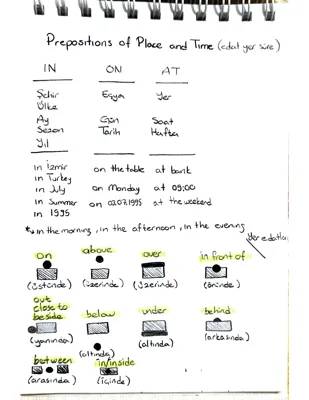 Prepositions of Place and Time (edat yer süre)
IN ON AT
Şehir Eşya Yer
Ülke
Ay Gün Saat
Sezon Tarih Hafta
Yıl
in İzmir on the table at bank
in Turkey
in July on Monday at 09:00
in Summer on 02.07.1995 at the weekend
in 1995
*→ in the morning, in the afternoon, in the evening
yer edatları
on above over in front of
(üstünde) (üzerinde) (üzerinde) (önünde)
out
close to
beside below under behind
(yanında) (altında) (altında) (arkasında)
between in/inside
(arasında) (içinde)